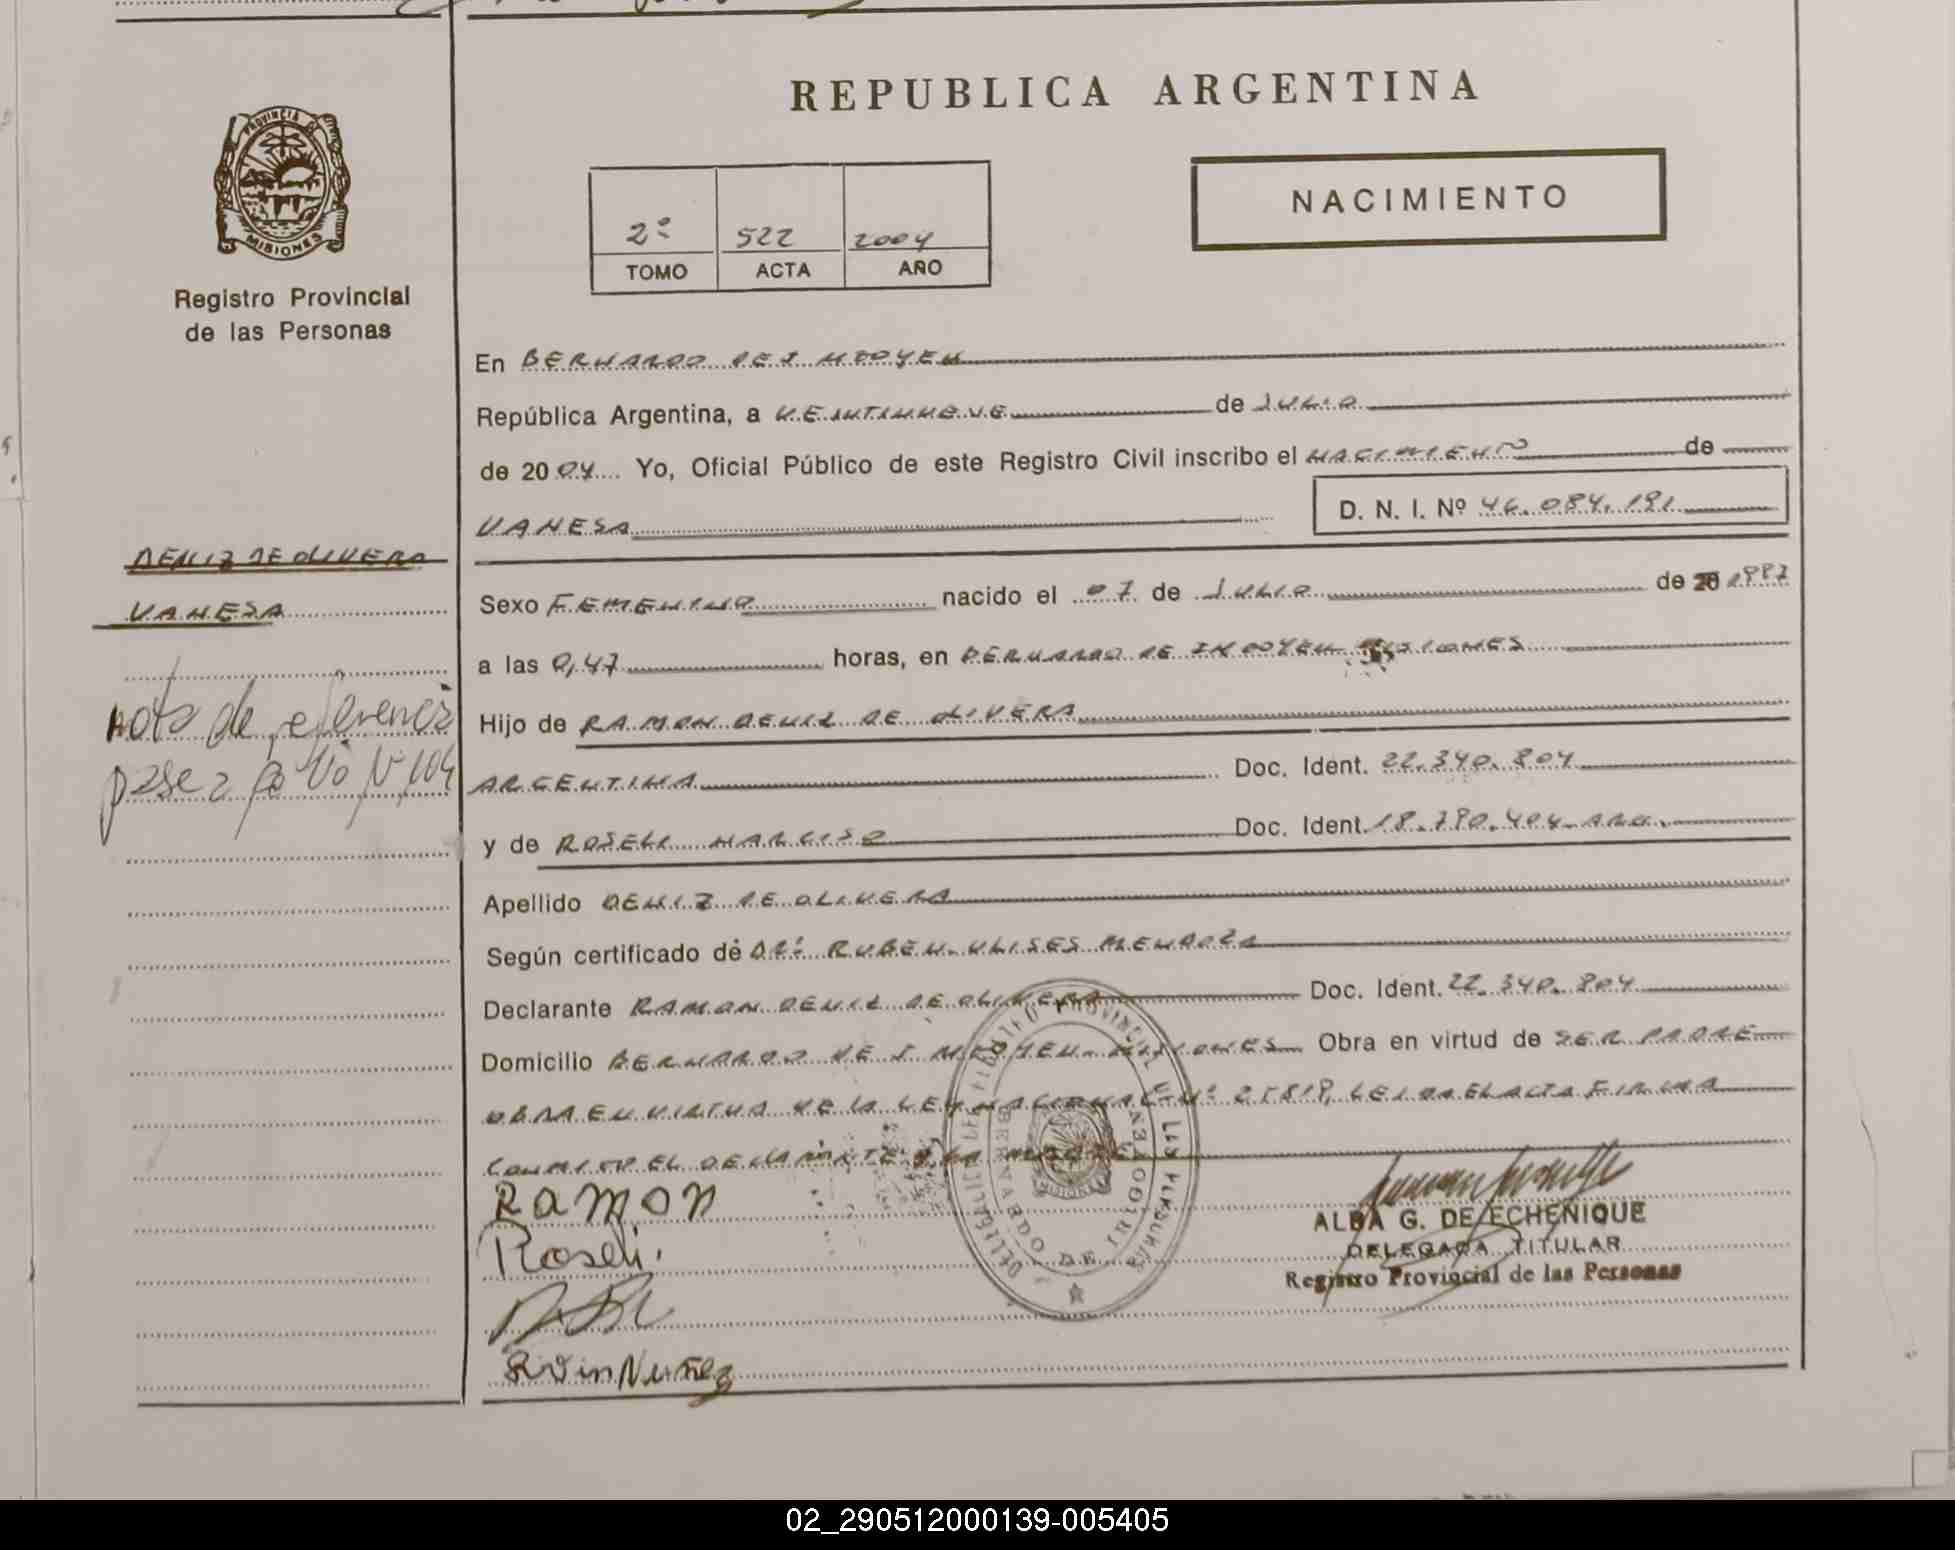 REPUBLICA ARGENTINA
PROVINCIA DE
MISIONES
Registro Provincial
de las Personas
2º 522 2004
TOMO ACTA AÑO
NACIMIENTO
En BERNARDO DE IRIGOYEN
República Argentina, a VEINTINUEVE de JULIO
de 2004 Yo, Oficial Público de este Registro Civil inscribo el NACIMIENTO de
VANESA D. N. I. Nº 46.084.191
DENIZ DE OLIVERA
VANESA
nota de referencia
pase a fo N 104
Sexo FEMENINO nacido el 07 de JULIO de 20 1997
a las 0,47 horas, en BERNARDO DE IRIGOYEN MISIONES
Hijo de RAMON DENIZ DE OLIVERA
ARGENTINA Doc. Ident. 22.340.804
y de ROSELI NARCISO Doc. Ident. 18.790.404
Apellido DENIZ DE OLIVERA
Según certificado de DR: RUBEN ULISES MENDOZA
Declarante RAMON DENIZ DE OLIVERA Doc. Ident. 22.340.804
Domicilio BERNARDO DE IRIGOYEN MISIONES Obra en virtud de SER PADRE
OBRA EN VIRTUD DE LA LEY NACIONAL Nº 25819, LEIDA EL ACTA FIRMA
CONMIGO EL DECLARANTE Y LA MADRE
RAMON
Roseli.
Nuñez
DELEGACION REGISTRO PROVINCIAL DE LAS PERSONAS
BERNARDO DE IRIGOYEN
MISIONES
ALBA G. DE ECHENIQUE
DELEGADA TITULAR
Registro Provincial de las Personas
02_290512000139-005405